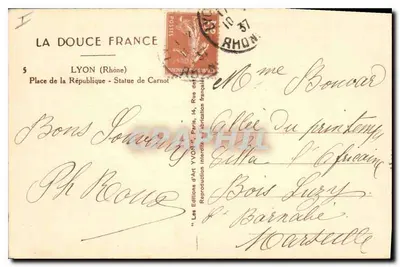 LA DOUCE FRANCE
5 LYON (Rhône)
Place de la République - Statue de Carnot
Bons Souvenirs
Ph Roux
POSTES
LYON
10
37
RHONE
"Les Editions d'Art YVON", Paris, 14, Rue de
Reproduction interdite - Fabrication française
Mme Bouvar
Allée du printemps
Villa l'Africaine
Bois Luzy
St Barnabé
Marseille